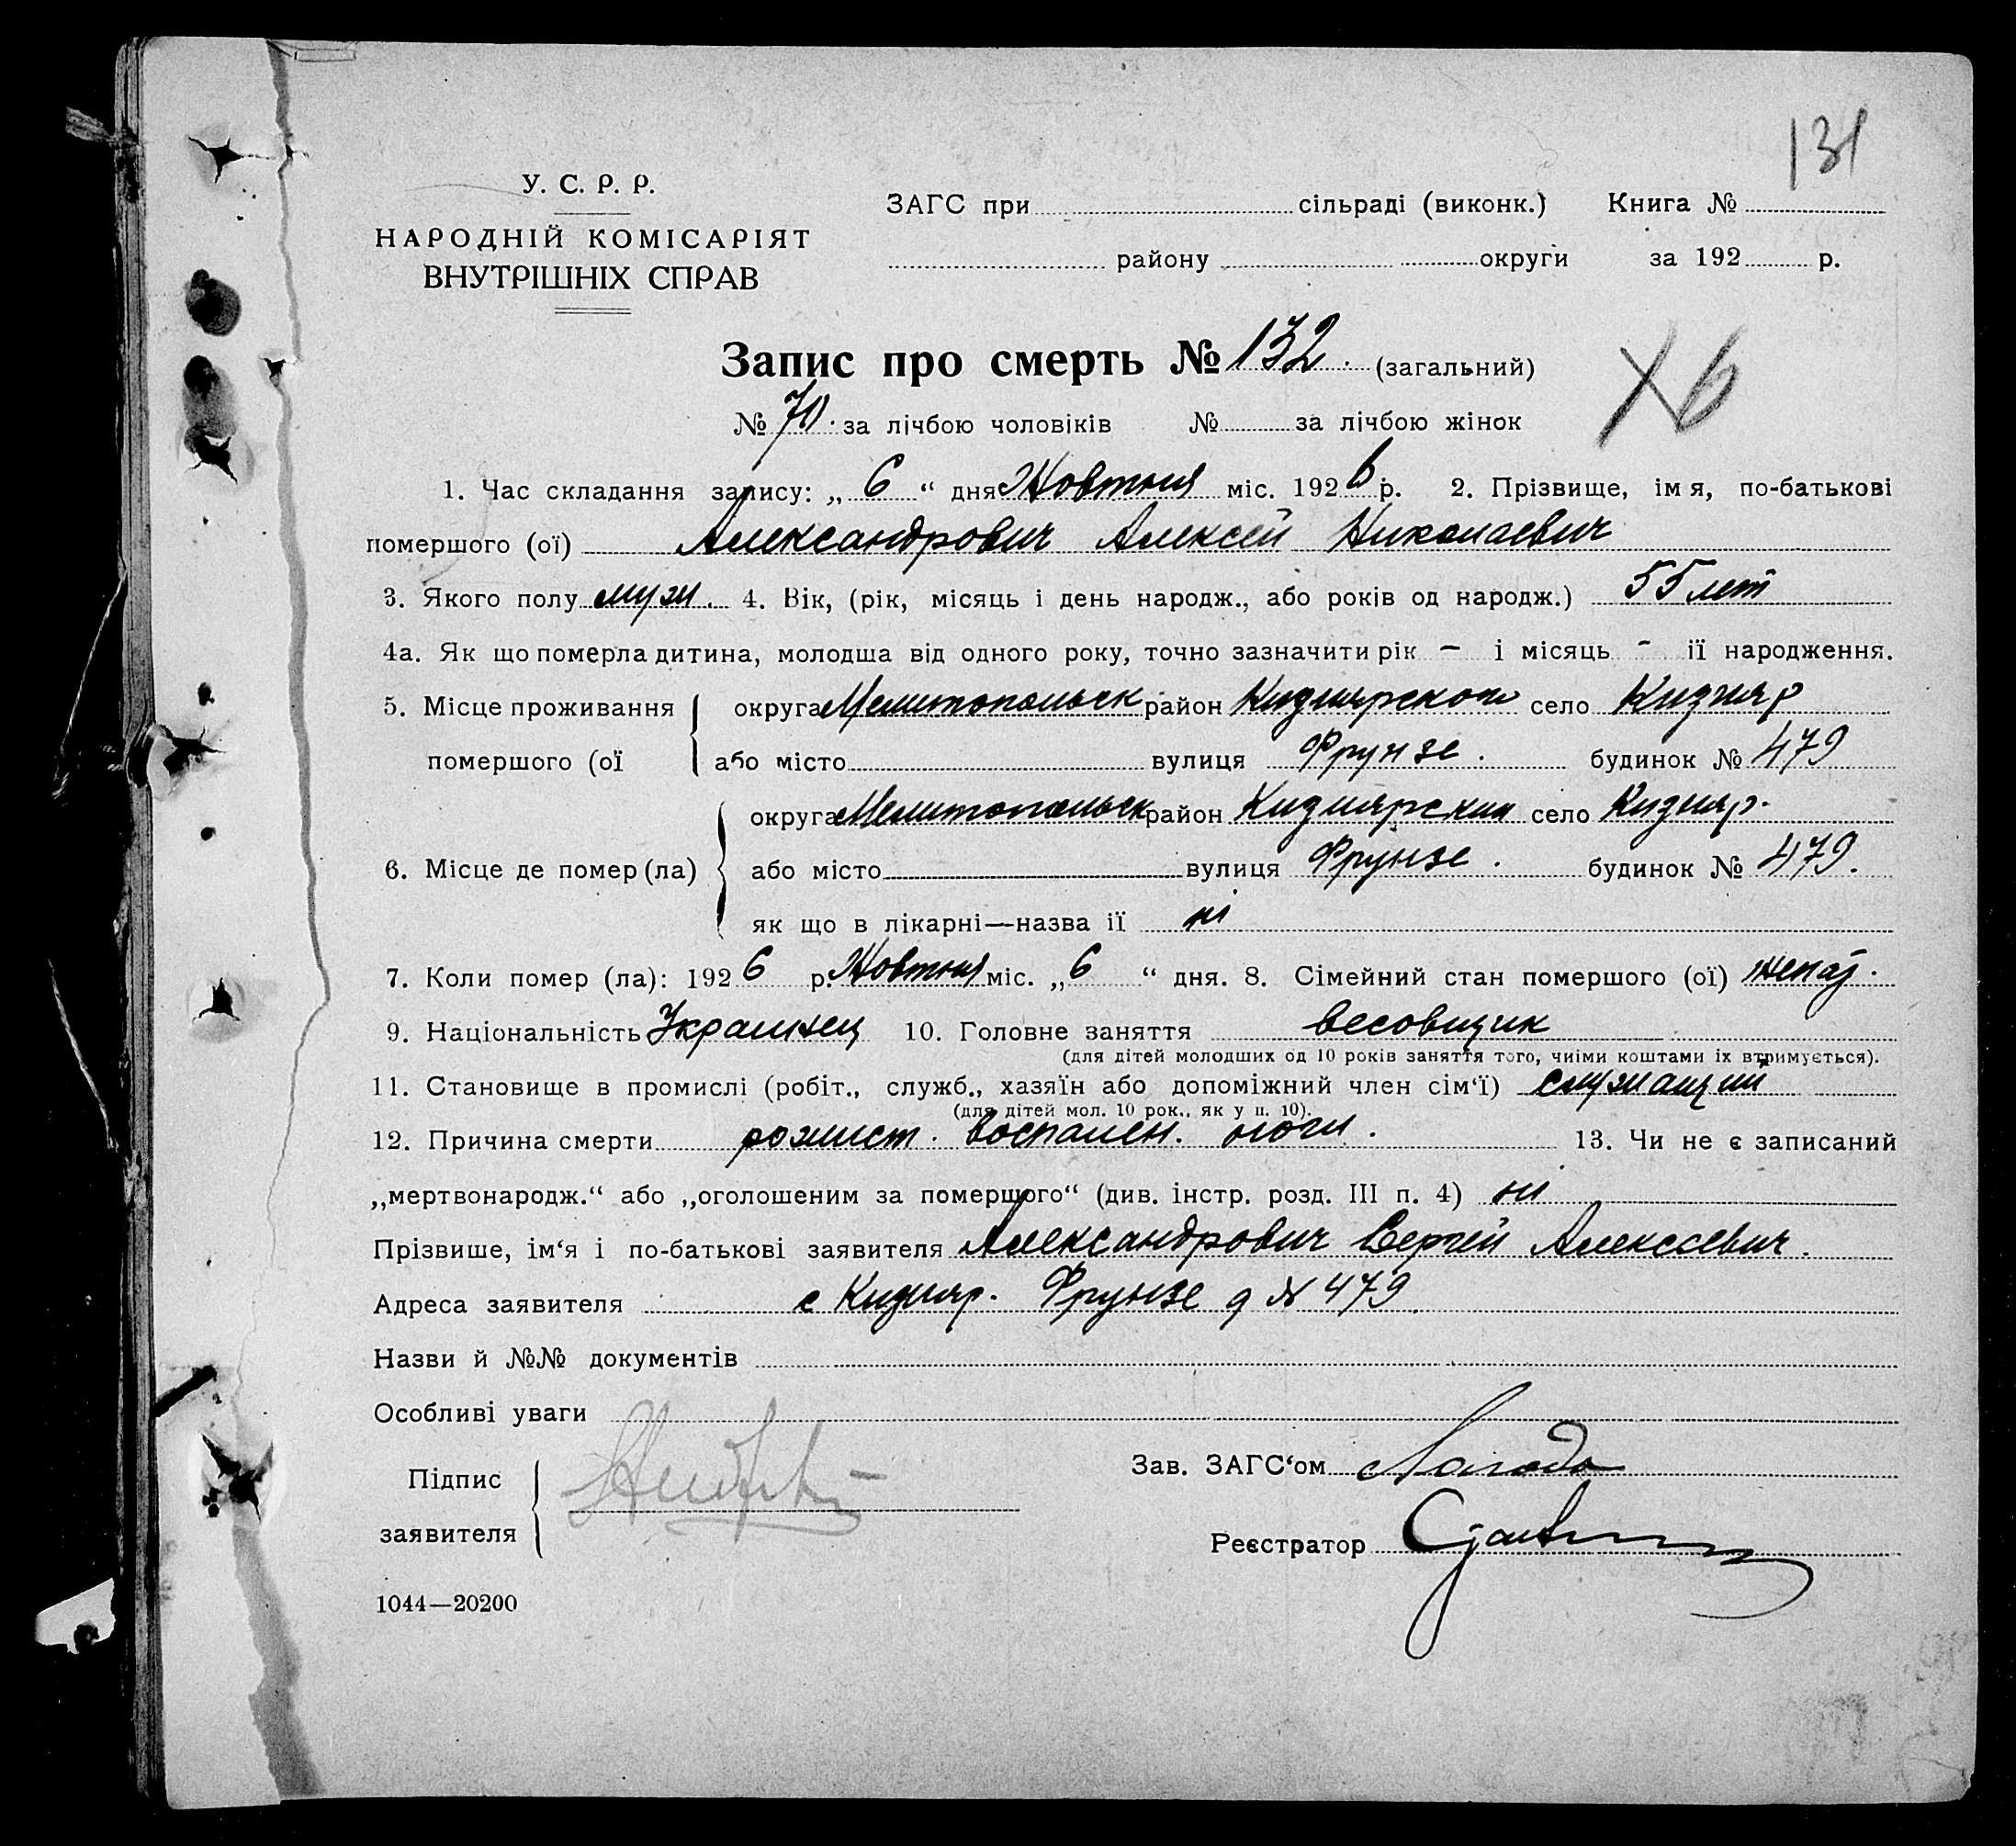 131
У. С. Р. Р.
НАРОДНІЙ КОМІСАРІЯТ
ВНУТРІШНІХ СПРАВ
ЗАГС при сільраді (виконк.) Книга №
району округи за 192 р.
Запис про смерть № 132. (загальний)
№ 70. за лічбою чоловіків № за лічбою жінок
1. Час складання запису: „ 6 “ дня Жовтня міс. 1926 р. 2. Прізвище, імя, по-батькові
помершого (ої) Александрович Алексей Николаевич
3. Якого полу муж. 4. Вік, (рік, місяць і день народж., або років од народж.) 55 лет
4а. Як що померла дитина, молодша від одного року, точно зазначити рік – і місяць - її народження.
5. Місце проживання округа Мелитопольск район Кизиярского село Кизияр
помершого (ої або місто вулиця Фрунзе. будинок № 479
округа Мелитопольск район Кизиярский село Кизияр.
6. Місце де помер (ла) або місто вулиця Фрунзе. будинок № 479.
як що в лікарні—назва її ні
7. Коли помер (ла): 1926 р. Жовтня міс. „ 6 “ дня. 8. Сімейний стан помершого (ої)
9. Національність Украинец 10. Головне заняття весовщик
(для дітей молодших од 10 років заняття того, чиїми коштами їх втримується).
11. Становище в промислі (робіт., служб., хазяїн або допоміжний член сім‘ї) служащий
(для дітей мол. 10 рок., як у п. 10).
12. Причина смерти рожист. воспален. ноги. 13. Чи не є записаний
„мертвонародж.“ або „оголошеним за помершого“ (див. інстр. розд. III п. 4) ні
Прізвише, ім‘я і по-батькові заявителя Александрович Сергей Алексеевич.
Адреса заявителя с Кизияр. Фрунзе д № 479
Назви й №№ документів
Особливі уваги
Підпис
заявителя
Зав. ЗАГС‘ом
Реєстратор
1044—20200